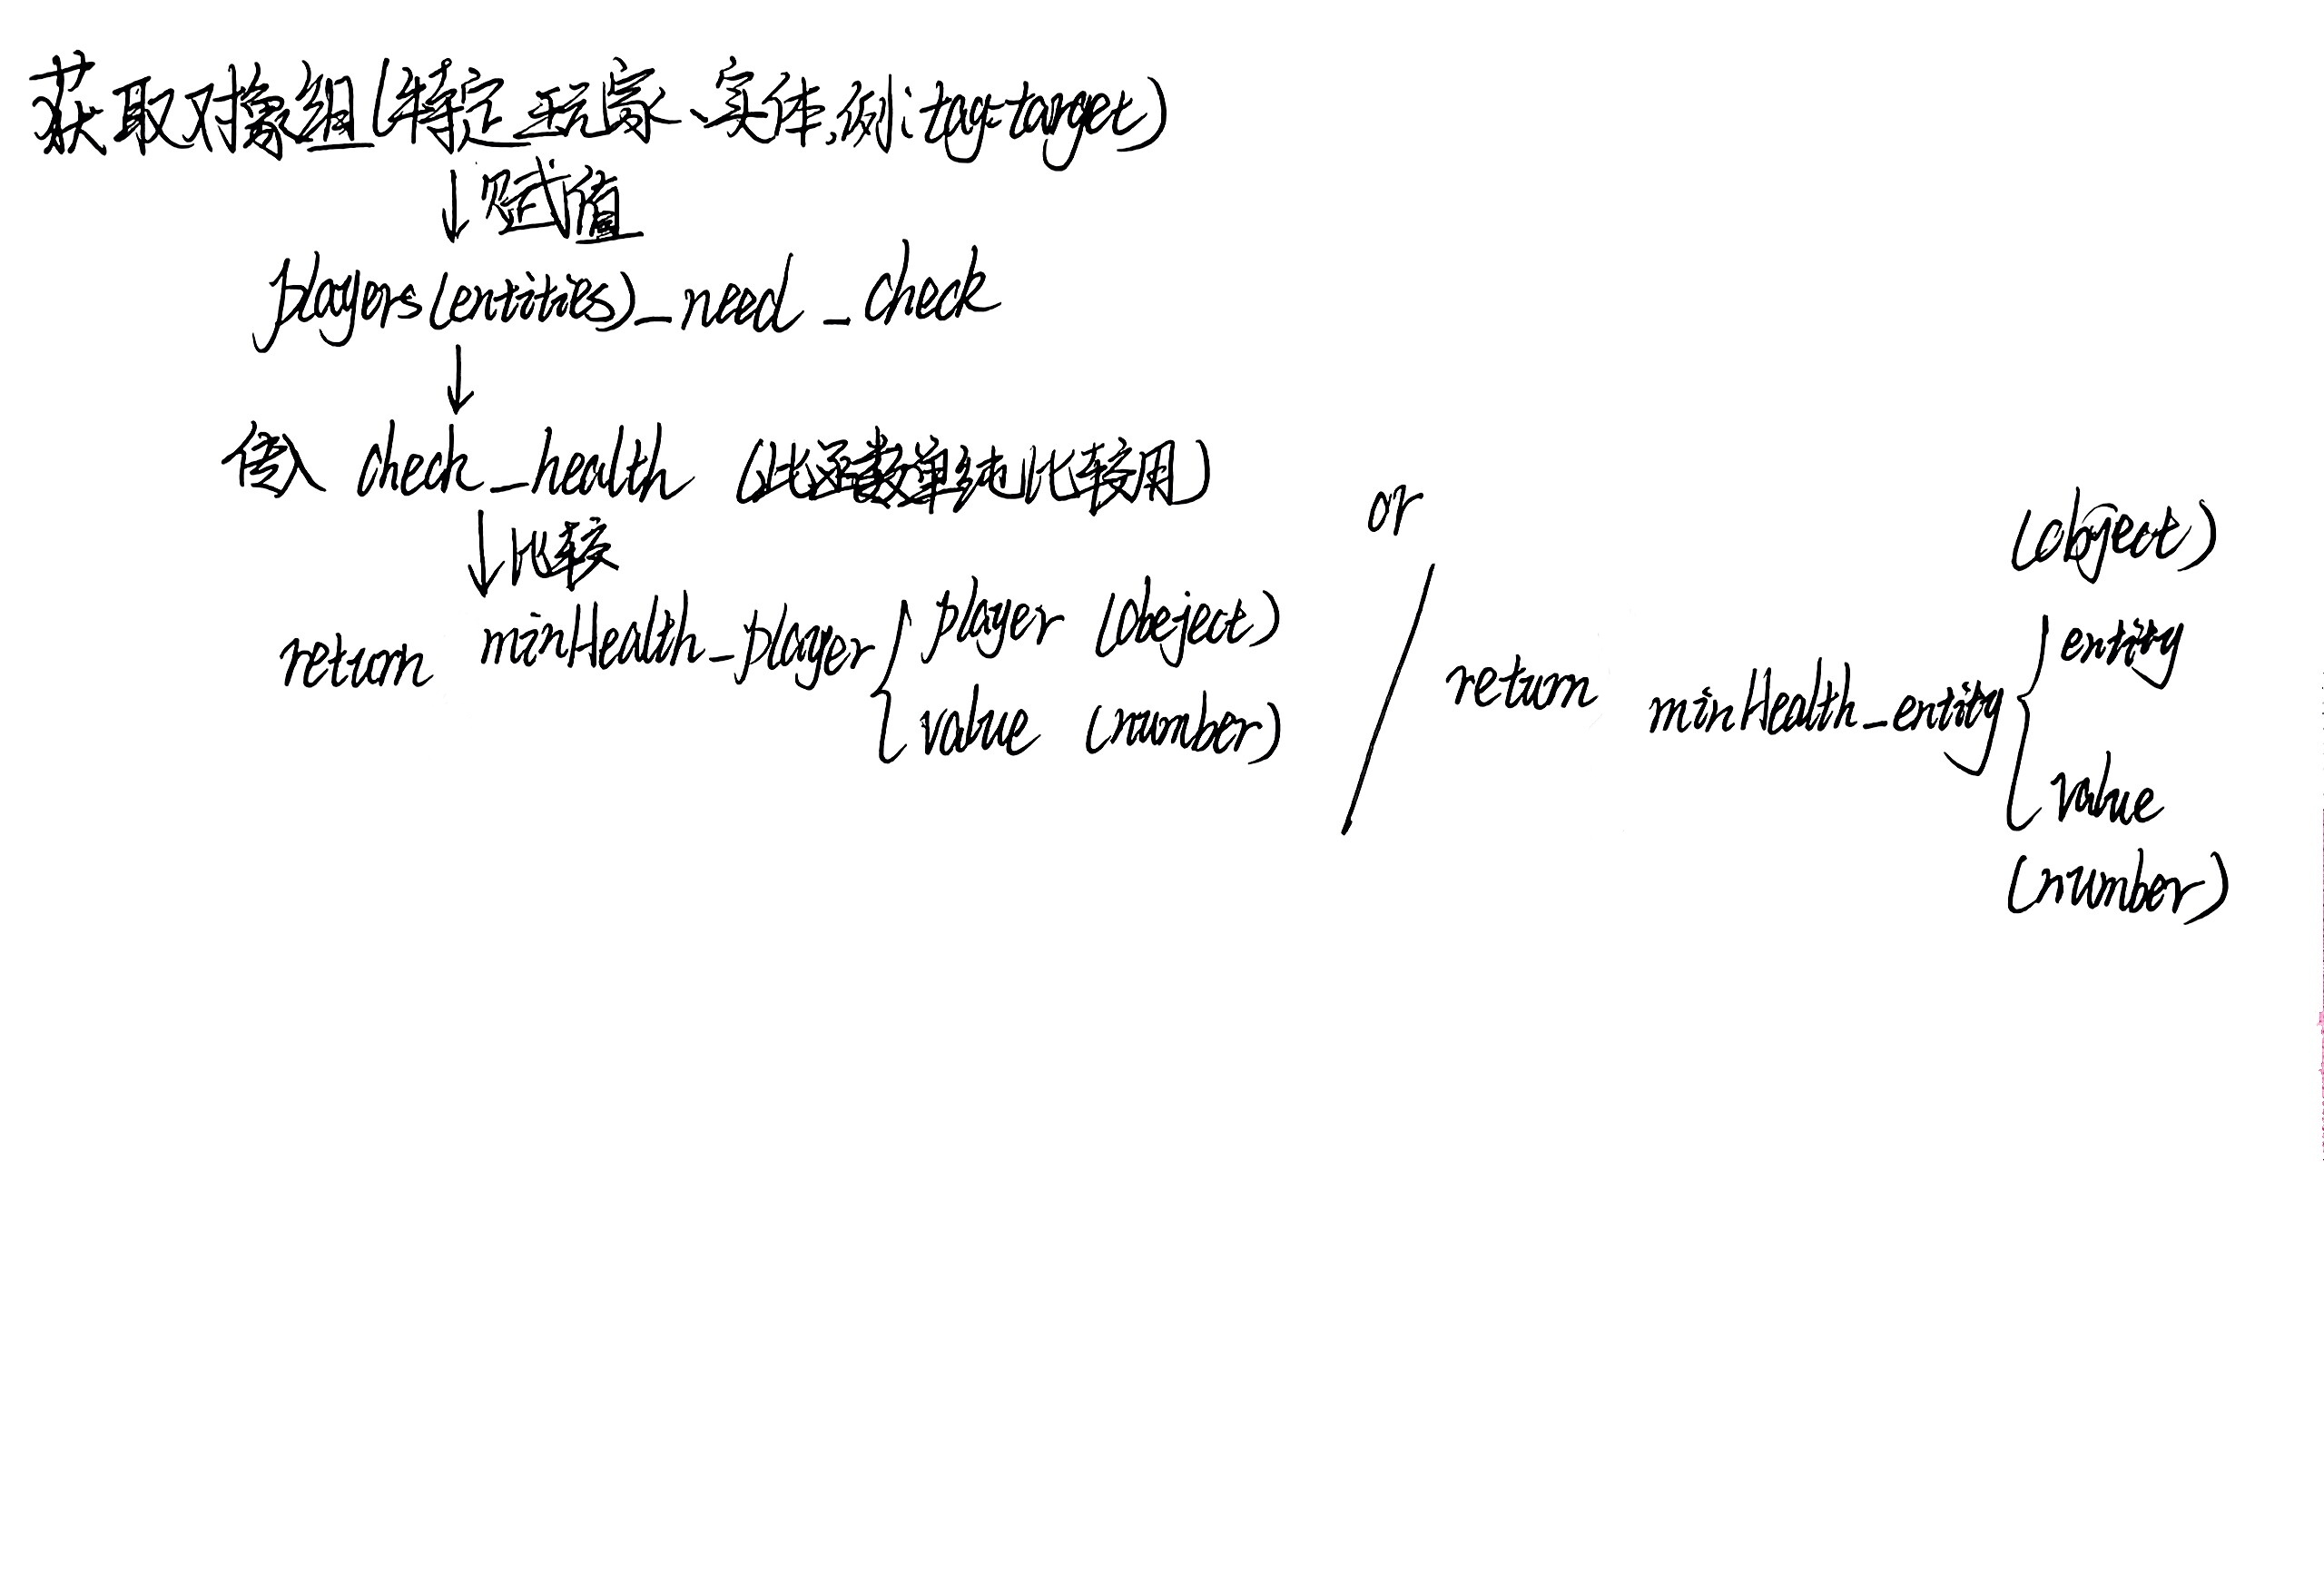 获取对象组(特定玩家、实体,例:tag=target)
↓赋值
players(entities)_need_check
↓
传入 check_health (此函数单纯比较用)
↓比较
return minHealth_player { player (obeject)
value (number)
or
/
return minHealth_entity { (object)
entity
value
(number)